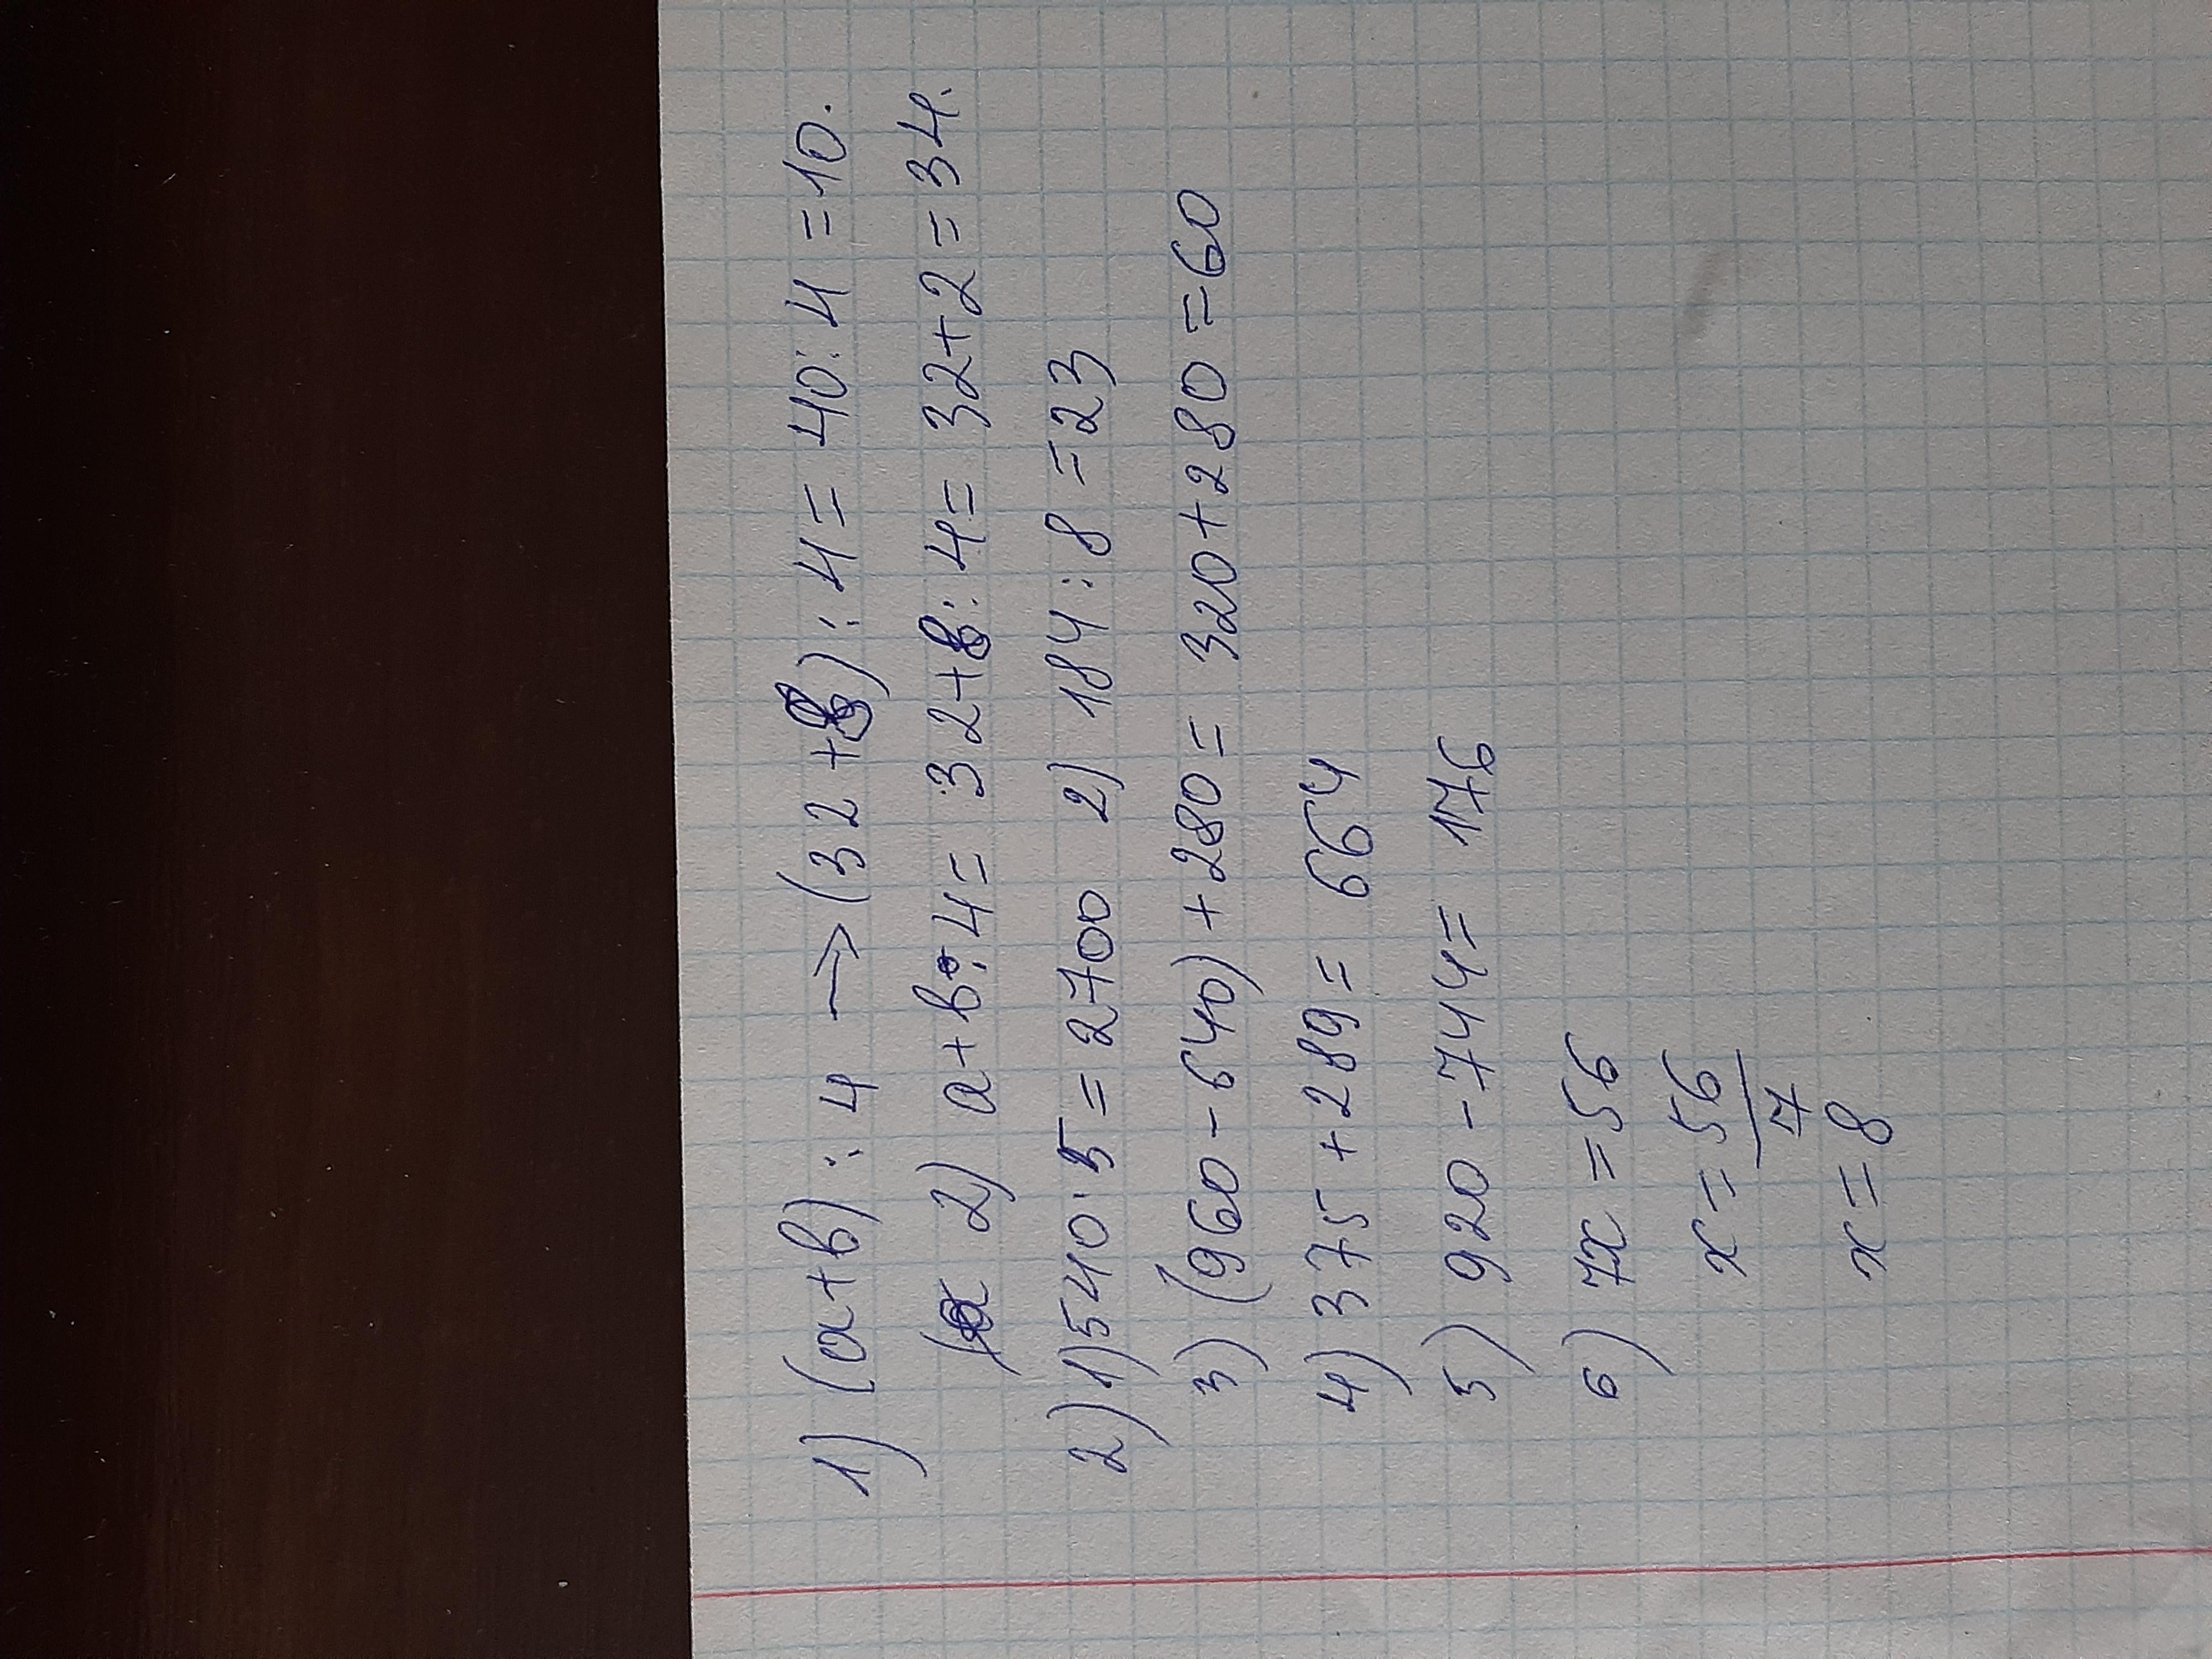 1) (a+b) : 4 → (32+8) : 4 = 40 : 4 = 10.
2) a+b : 4 = 32+8 : 4 = 32+2 = 34.
2) 1) 540 · 5 = 2700 2) 184 : 8 = 23
3) (960 - 640) + 280 = 320 + 280 = 60
4) 375 + 289 = 664
5) 920 - 744 = 176
6) 7x = 56
x = 56/7
x = 8